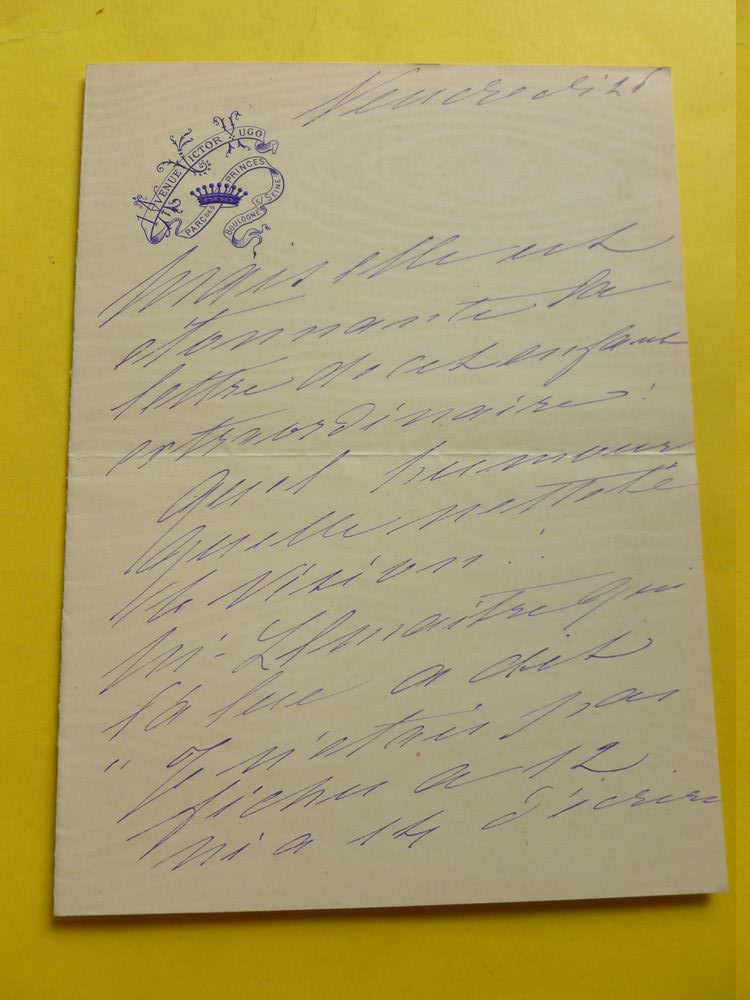 Vendredi 25
1 AVENUE VICTOR HUGO
PARC DES PRINCES
BOULOGNE S/ SEINE
Mais elle est
étonnante la
lettre de cet enfant
extraordinaire !
Quel humour
quelle netteté
de vision !
M. Lemaître qui
l'a lue a dit
" Je n'étais pas
fichu a 12
ni a 14 d'écrire